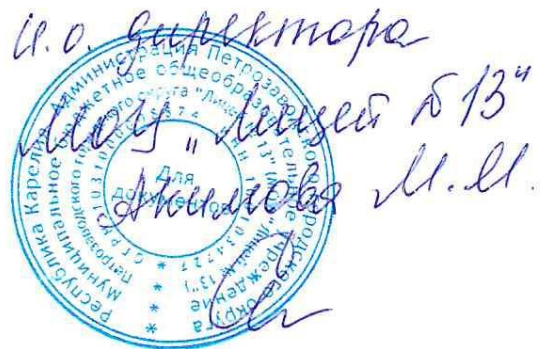 и.о. директора
МОУ "Лицей № 13"
Акимова М.М.
Республика Карелия Администрация Петрозаводского городского округа
Муниципальное бюджетное общеобразовательное учреждение
Петрозаводского городского округа "Лицей № 13"
Для
документов